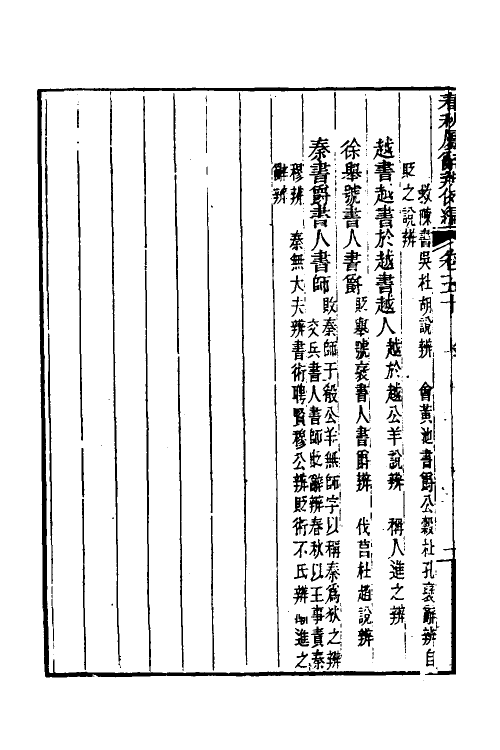 春秋屬辭辨例編 卷五十
救陳書吳杜胡說辨 會黃池書爵公穀杜孔衰辭辨 自
貶之說辨
越書越書於越書越人 越於越公羊說辨 稱人進之辨
徐舉號書人書爵 貶舉號衰書人書爵辨 伐莒杜趙說辨
秦書爵書人書師 敗秦師于殽公羊無師字以稱秦爲狄之辨
交兵書人書師貶辭辨 春秋以王事責秦
穆辨 秦無大夫辨 書術聘賢穆公辨 貶術不氏辨 進之
辭辨